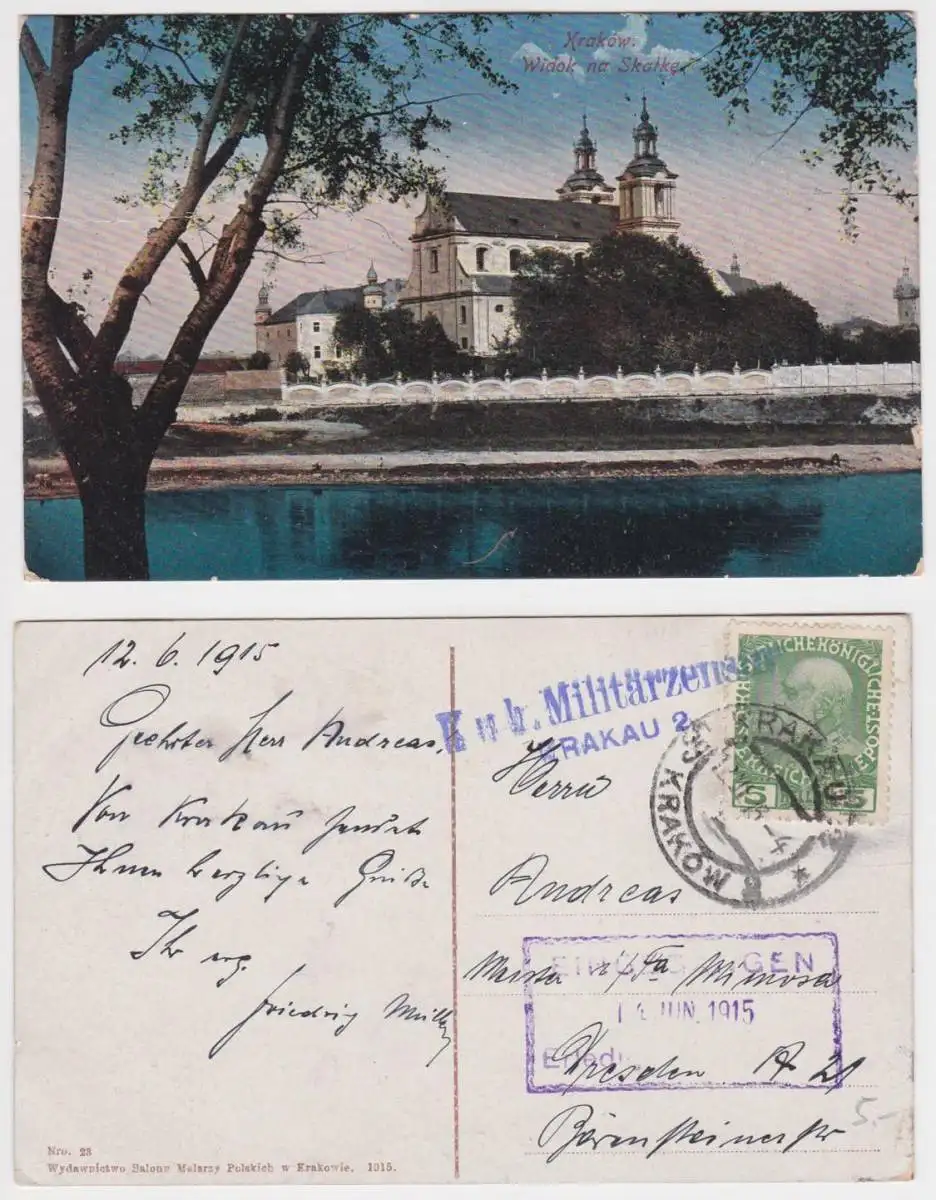 Kraków.
Widok na Skałkę.
12. 6. 1915
Geehrter Herr Andreas,
Von Krakau sendet
Ihnen herzliche Grüße
Ihr erg.
Friedrich
K. u. k. Militärzensur
KRAKAU 2
KAISERLICHE KÖNIGLICHE
5 5
KRAKAU
KRAKÓW
Herrn
Andreas
i/Fa Mimosa
EINGEGANGEN
14. JUN. 1915
Erled.
Dresden A 21
Bärensteinerstr
5.-
Nro. 23
Wydawnictwo Salonu Malarzy Polskich w Krakowie. 1915.